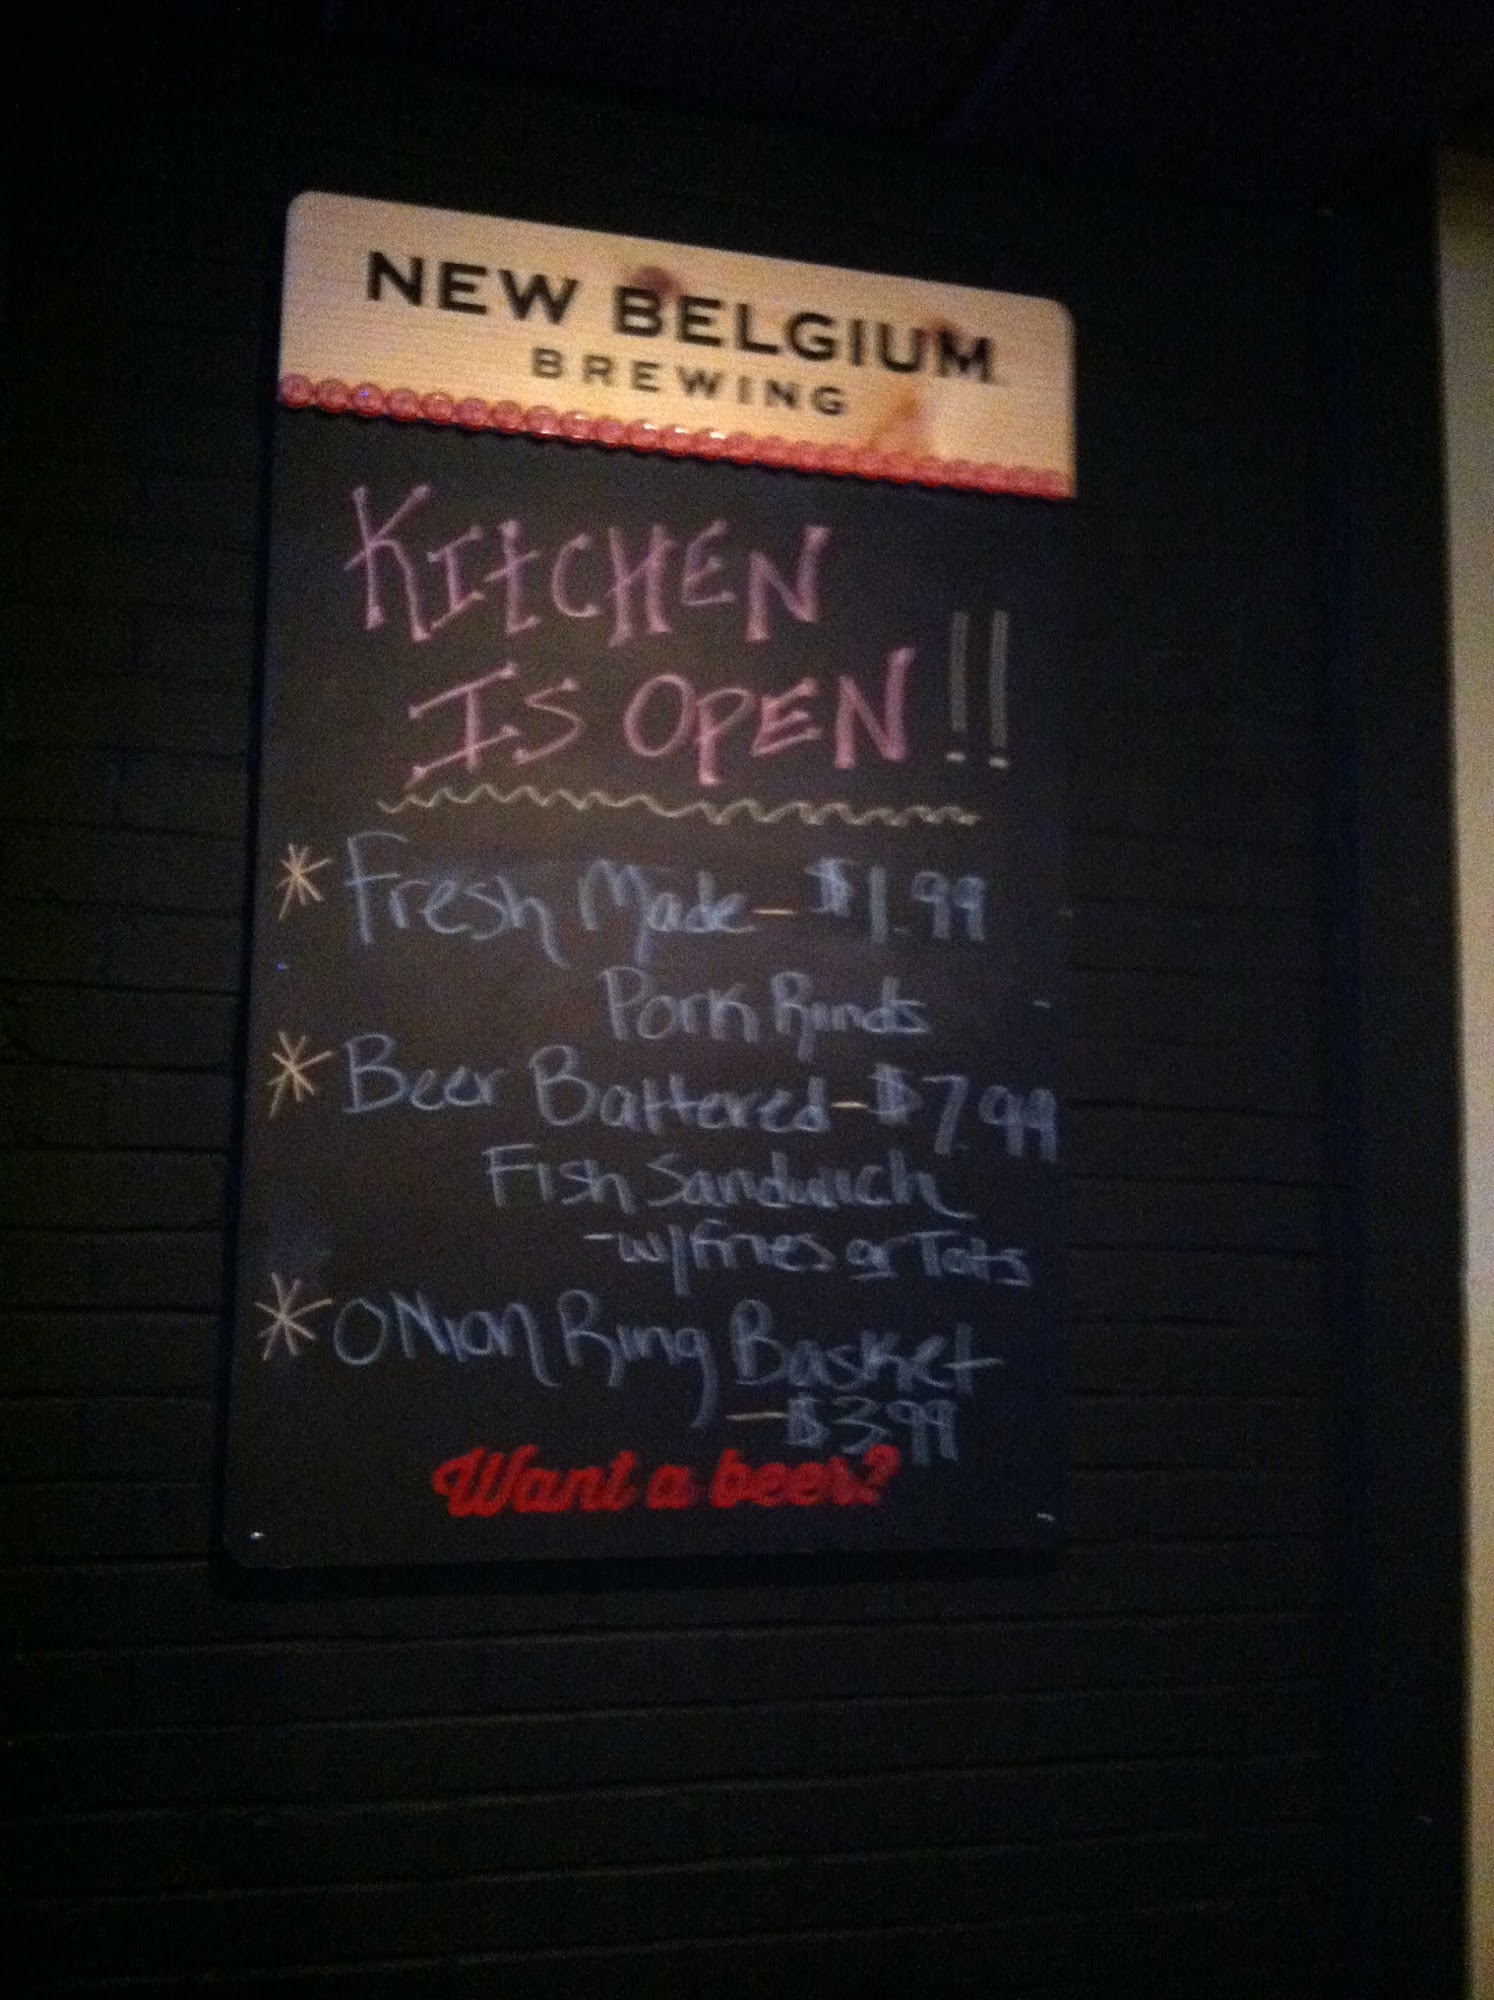 NEW BELGIUM
BREWING
KITCHEN
IS OPEN!!
* Fresh Made - $1.99
Pork Rinds
* Beer Battered - $7.99
Fish Sandwich
- w/fries or Tots
* ONion Ring Basket
- $3.99
Want a beer?